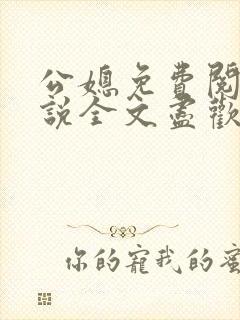 公媳免費閱
說全文盡歡
你的寵我的蜜